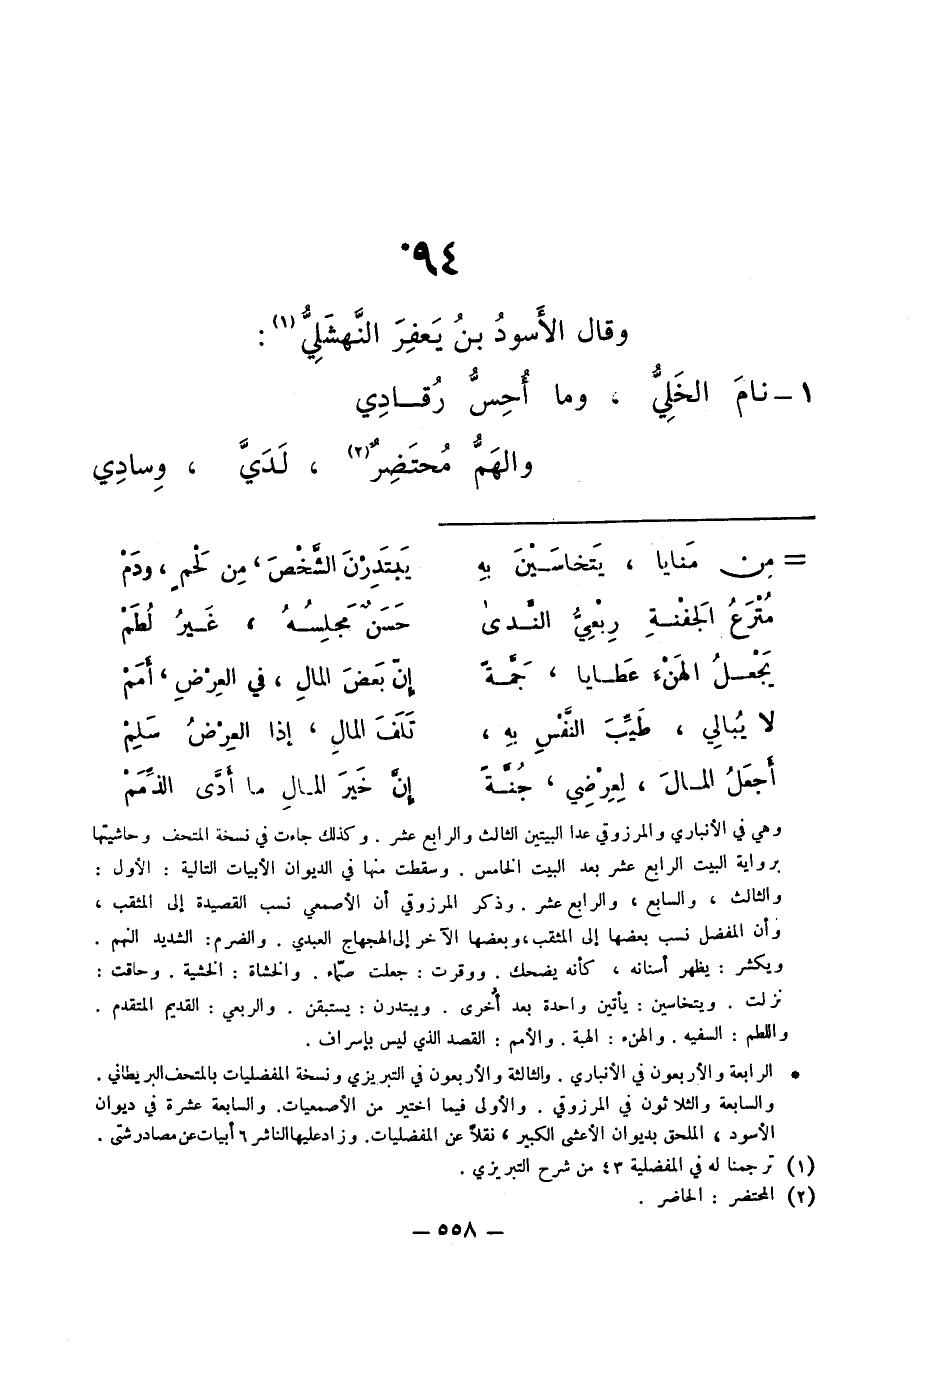 ٩٤*
وقال الأَسودُ بنُ يَعفِرَ النَّهشَلِيُّ(١) :
١ – نامَ الخَلِيُّ ، وما أُحِسُّ رُقــادِي
والهَمُّ مُحتَضِرٌ(٢) ، لَدَيَّ ، وِسادِي
= مِن مَنايا ، يَتَخاسَـيْنَ بِهِ يَبتَدِرْنَ الشَّخْصَ ، مِن لَحْمٍ ، ودَمْ
مُتْرَعُ الجَفْنـةِ رِبْعِيُّ النَّـدىٰ حَسَنٌ مَجلِسُـهُ ، غَـيرُ لُطَمْ
يَجْعَـلُ الهَنْءَ عَطـايا ، جَمَّـةً إنّ بَعضَ المالِ ، في العِرْضِ ، أَمَمْ
لا يُبالِي ، طَيِّبَ النَّفْسِ بِهِ ، تَلَفَ المالِ ، إذا العِرْضُ سَلِمْ
أَجعَلُ المـالَ ، لِعِرْضِي ، جُنَّـةً إنَّ خَيرَ المـالِ ما أَدَّى الذِّمَمْ
وهي في الأنباري والمرزوقي عدا البيتين الثالث والرابع عشر . وكذلك جاءت في نسخة المتحف وحاشيتها
برواية البيت الرابع عشر بعد البيت الخامس . وسقطت منها في الديوان الأبيات التالية : الأول :
والثالث ، والسابع ، والرابع عشر . وذكر المرزوقي أن الأصمعي نسب القصيدة إلى المثقب ،
وأن المفضل نسب بعضها إلى المثقب، وبعضها الآخر إلى الهجهاج العبدي . والضرم : الشديد النهم .
ويكشر : يظهر أسنانه ، كأنه يضحك . ووقرت : جعلت صمّاء . والخشاة : الخشية . وحاقت :
نزلت . ويتخاسين : يأتين واحدة بعد أُخرى . ويبتدرن : يستبقن . والربعي : القديم المتقدم .
واللطم : السفيه . والهنء : الهبة . والأمم : القصد الذي ليس بإسراف .
* الرابعة والأربعون في الأنباري . والثالثة والأربعون في التبريزي ونسخة المفضليات بالمتحف البريطاني .
والسابعة والثلاثون في المرزوقي . والأولى فيما اختير من الأصمعيات. والسابعة عشرة في ديوان
الأسود ، الملحق بديوان الأعشى الكبير ، نقلاً عن المفضليات. وزاد عليها الناشر ٦ أبيات عن مصادر شتى .
(١) ترجمنا له في المفضلية ٤٣ من شرح التبريزي .
(٢) المحتضر : الحاضر .
– ٥٥٨ –